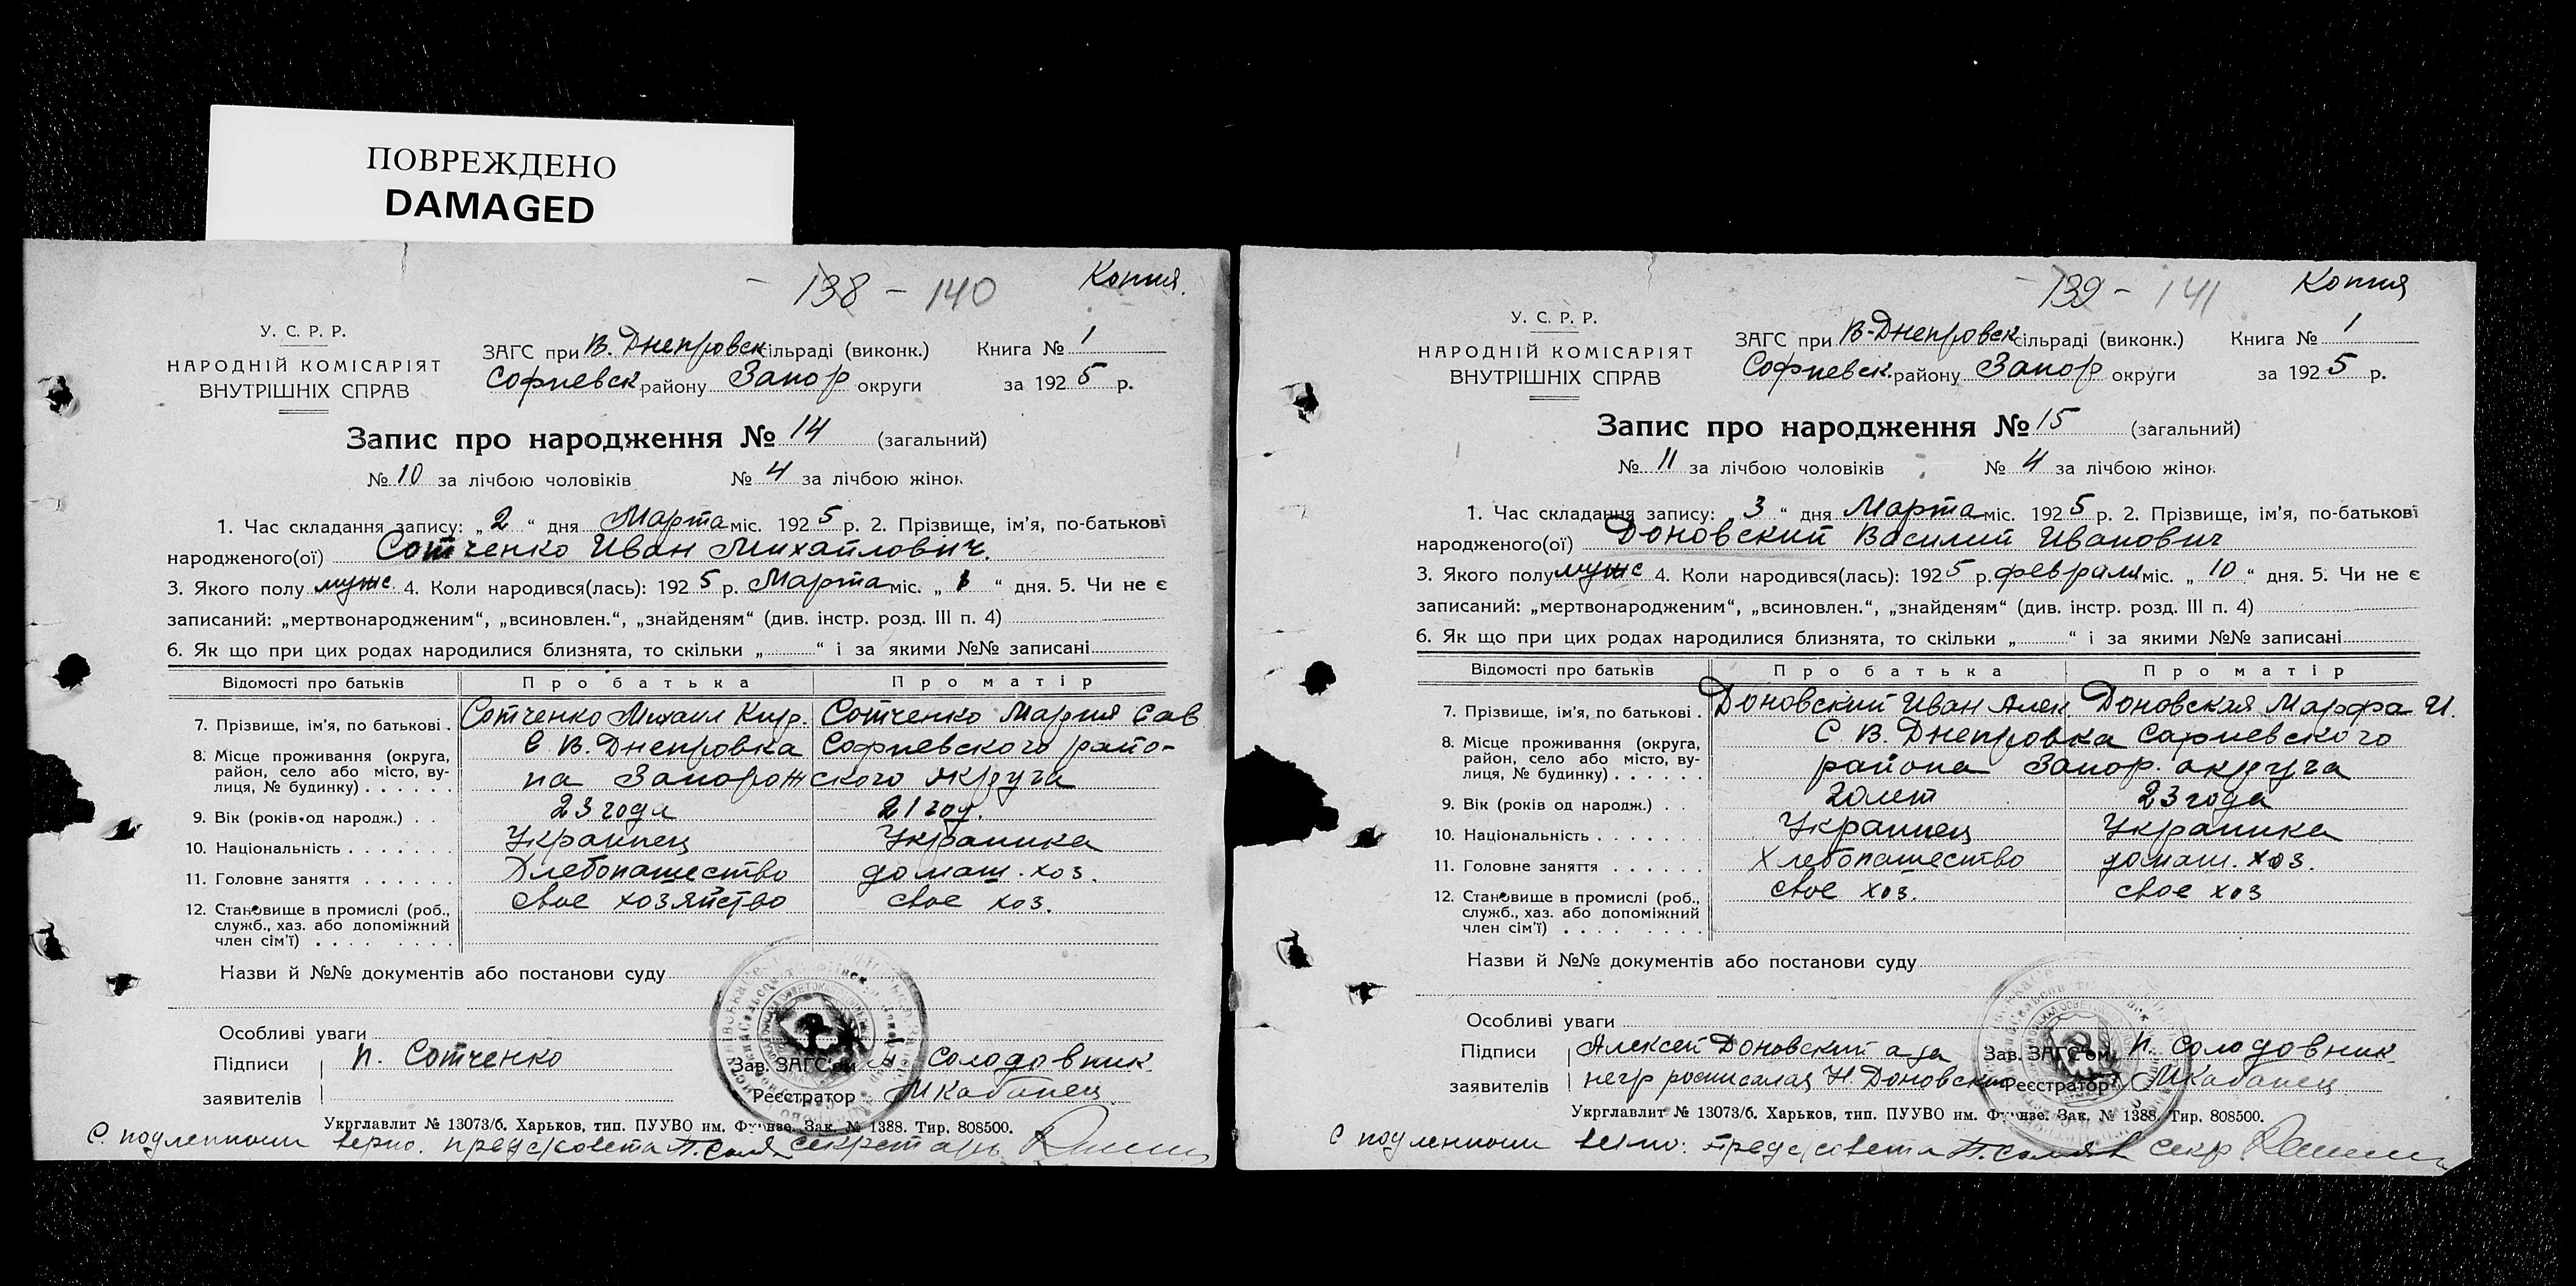 ПОВРЕЖДЕНО
DAMAGED
138 - 140
Копия.
У. С. Р. Р.
НАРОДНІЙ КОМІСАРІЯТ
ВНУТРІШНІХ СПРАВ
ЗАГС при В. Днепровск сільраді (виконк.) Книга № 1
Софиевск району Запор округи за 1925 р.
Запис про народження № 14 (загальний)
№ 10 за лічбою чоловіків № 4 за лічбою жінок
1. Час складання запису: „2“ дня Марта міс. 1925 р. 2. Прізвище, ім’я, по-батькові
народженого(ої) Сотченко Иван Михайлович.
3. Якого полу муж 4. Коли народився(лась): 1925 р. Марта міс. „1“ дня. 5. Чи не є
записаний: „мертвонародженим“, „всиновлен.“, „знайденям“ (див. інстр. розд. III п. 4)
6. Як що при цих родах народилися близнята, то скільки „ “ і за якими №№ записані
Відомості про батьків Про батька Про матір
7. Прізвище, ім’я, по батькові . Сотченко Михаил Кир. Сотченко Мария Сав
8. Місце проживання (округа, район, село або місто, вулиця, № будинку) . . . . . . С. В. Днепровка Софиевского райо-
на Запорожского округа
9. Вік (років од народж.) . . 23 года 21 год.
10. Національність . . . . . . . Украинец Украинка
11. Головне заняття . . . . . . Хлебопашество домаш. хоз.
12. Становище в промислі (роб., служб., хаз. або допоміжний член сім’ї) . . . . свое хозяйство свое хоз.
Назви й №№ документів або постанови суду
Особливі уваги
Підписи заявителів П. Сотченко
Зав. ЗАГС’ом Н Солодовник
Реєстратор МКабанец
Укрглавлит № 13073/б. Харьков, тип. ПУУВО им. Фрунзе. Зак. № 1388. Тир. 808500.
С подленным верно. предс/совета секретарь
139 - 141
Копия
У. С. Р. Р.
НАРОДНІЙ КОМІСАРІЯТ
ВНУТРІШНІХ СПРАВ
ЗАГС при В-Днепровск сільраді (виконк.) Книга № 1
Софиевск. району Запор округи за 1925 р.
Запис про народження № 15 (загальний)
№ 11 за лічбою чоловіків № 4 за лічбою жінок
1. Час складання запису: „3“ дня Марта міс. 1925 р. 2. Прізвище, ім’я, по-батькові
народженого(ої) Доновский Василий Иванович
3. Якого полу муж 4. Коли народився(лась): 1925 р. февраля міс. „10“ дня. 5. Чи не є
записаний: „мертвонародженим“, „всиновлен.“, „знайденям“ (див. інстр. розд. III п. 4)
6. Як що при цих родах народилися близнята, то скільки „ “ і за якими №№ записані
Відомості про батьків Про батька Про матір
7. Прізвище, ім’я, по батькові . Доновский Иван Алек. Доновская Марфа И.
8. Місце проживання (округа, район, село або місто, вулиця, № будинку) . . . . . . С В. Днепровка Софиевского
района Запор. округа
9. Вік (років од народж.) . . 20 лет 23 года
10. Національність . . . . . . Украинец Украинка
11. Головне заняття . . . . . . Хлебопашество домаш. хоз.
12. Становище в промислі (роб., служб., хаз. або допоміжний член сім’ї) . . . . свое хоз. свое хоз
Назви й №№ документів або постанови суду
Особливі уваги
Підписи заявителів Алексей Доновский а за
негр росписался Н. Доновский
Зав. ЗАГС’ом Н. Солодовник
Реєстратор МКабанец
Укрглавлит № 13073/б. Харьков, тип. ПУУВО им. Фрунзе. Зак. № 1388. Тир. 808500.
С подленным верно: предс/совета секр